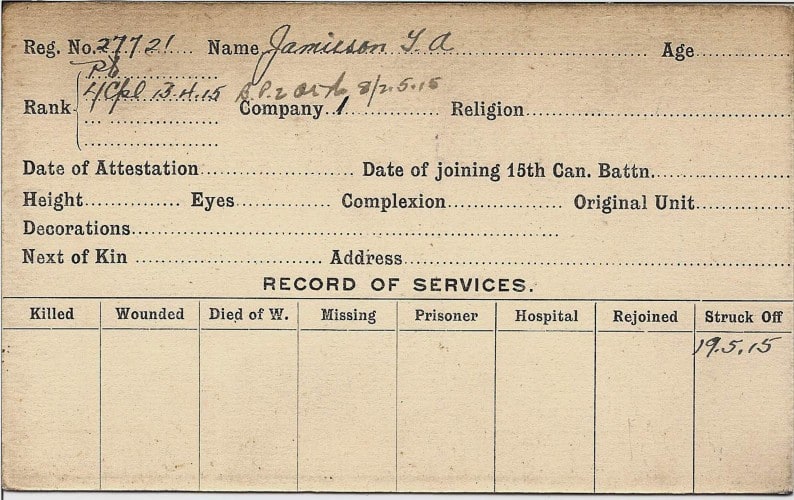 Reg. No. 27721 Name Jamieson T A Age
Pte
Rank L/Cpl 13.4.15 Company 1 Religion
Date of Attestation Date of joining 15th Can. Battn.
Height Eyes Complexion Original Unit
Decorations
Next of Kin Address
RECORD OF SERVICES.
Killed Wounded Died of W. Missing Prisoner Hospital Rejoined Struck Off
19.5.15